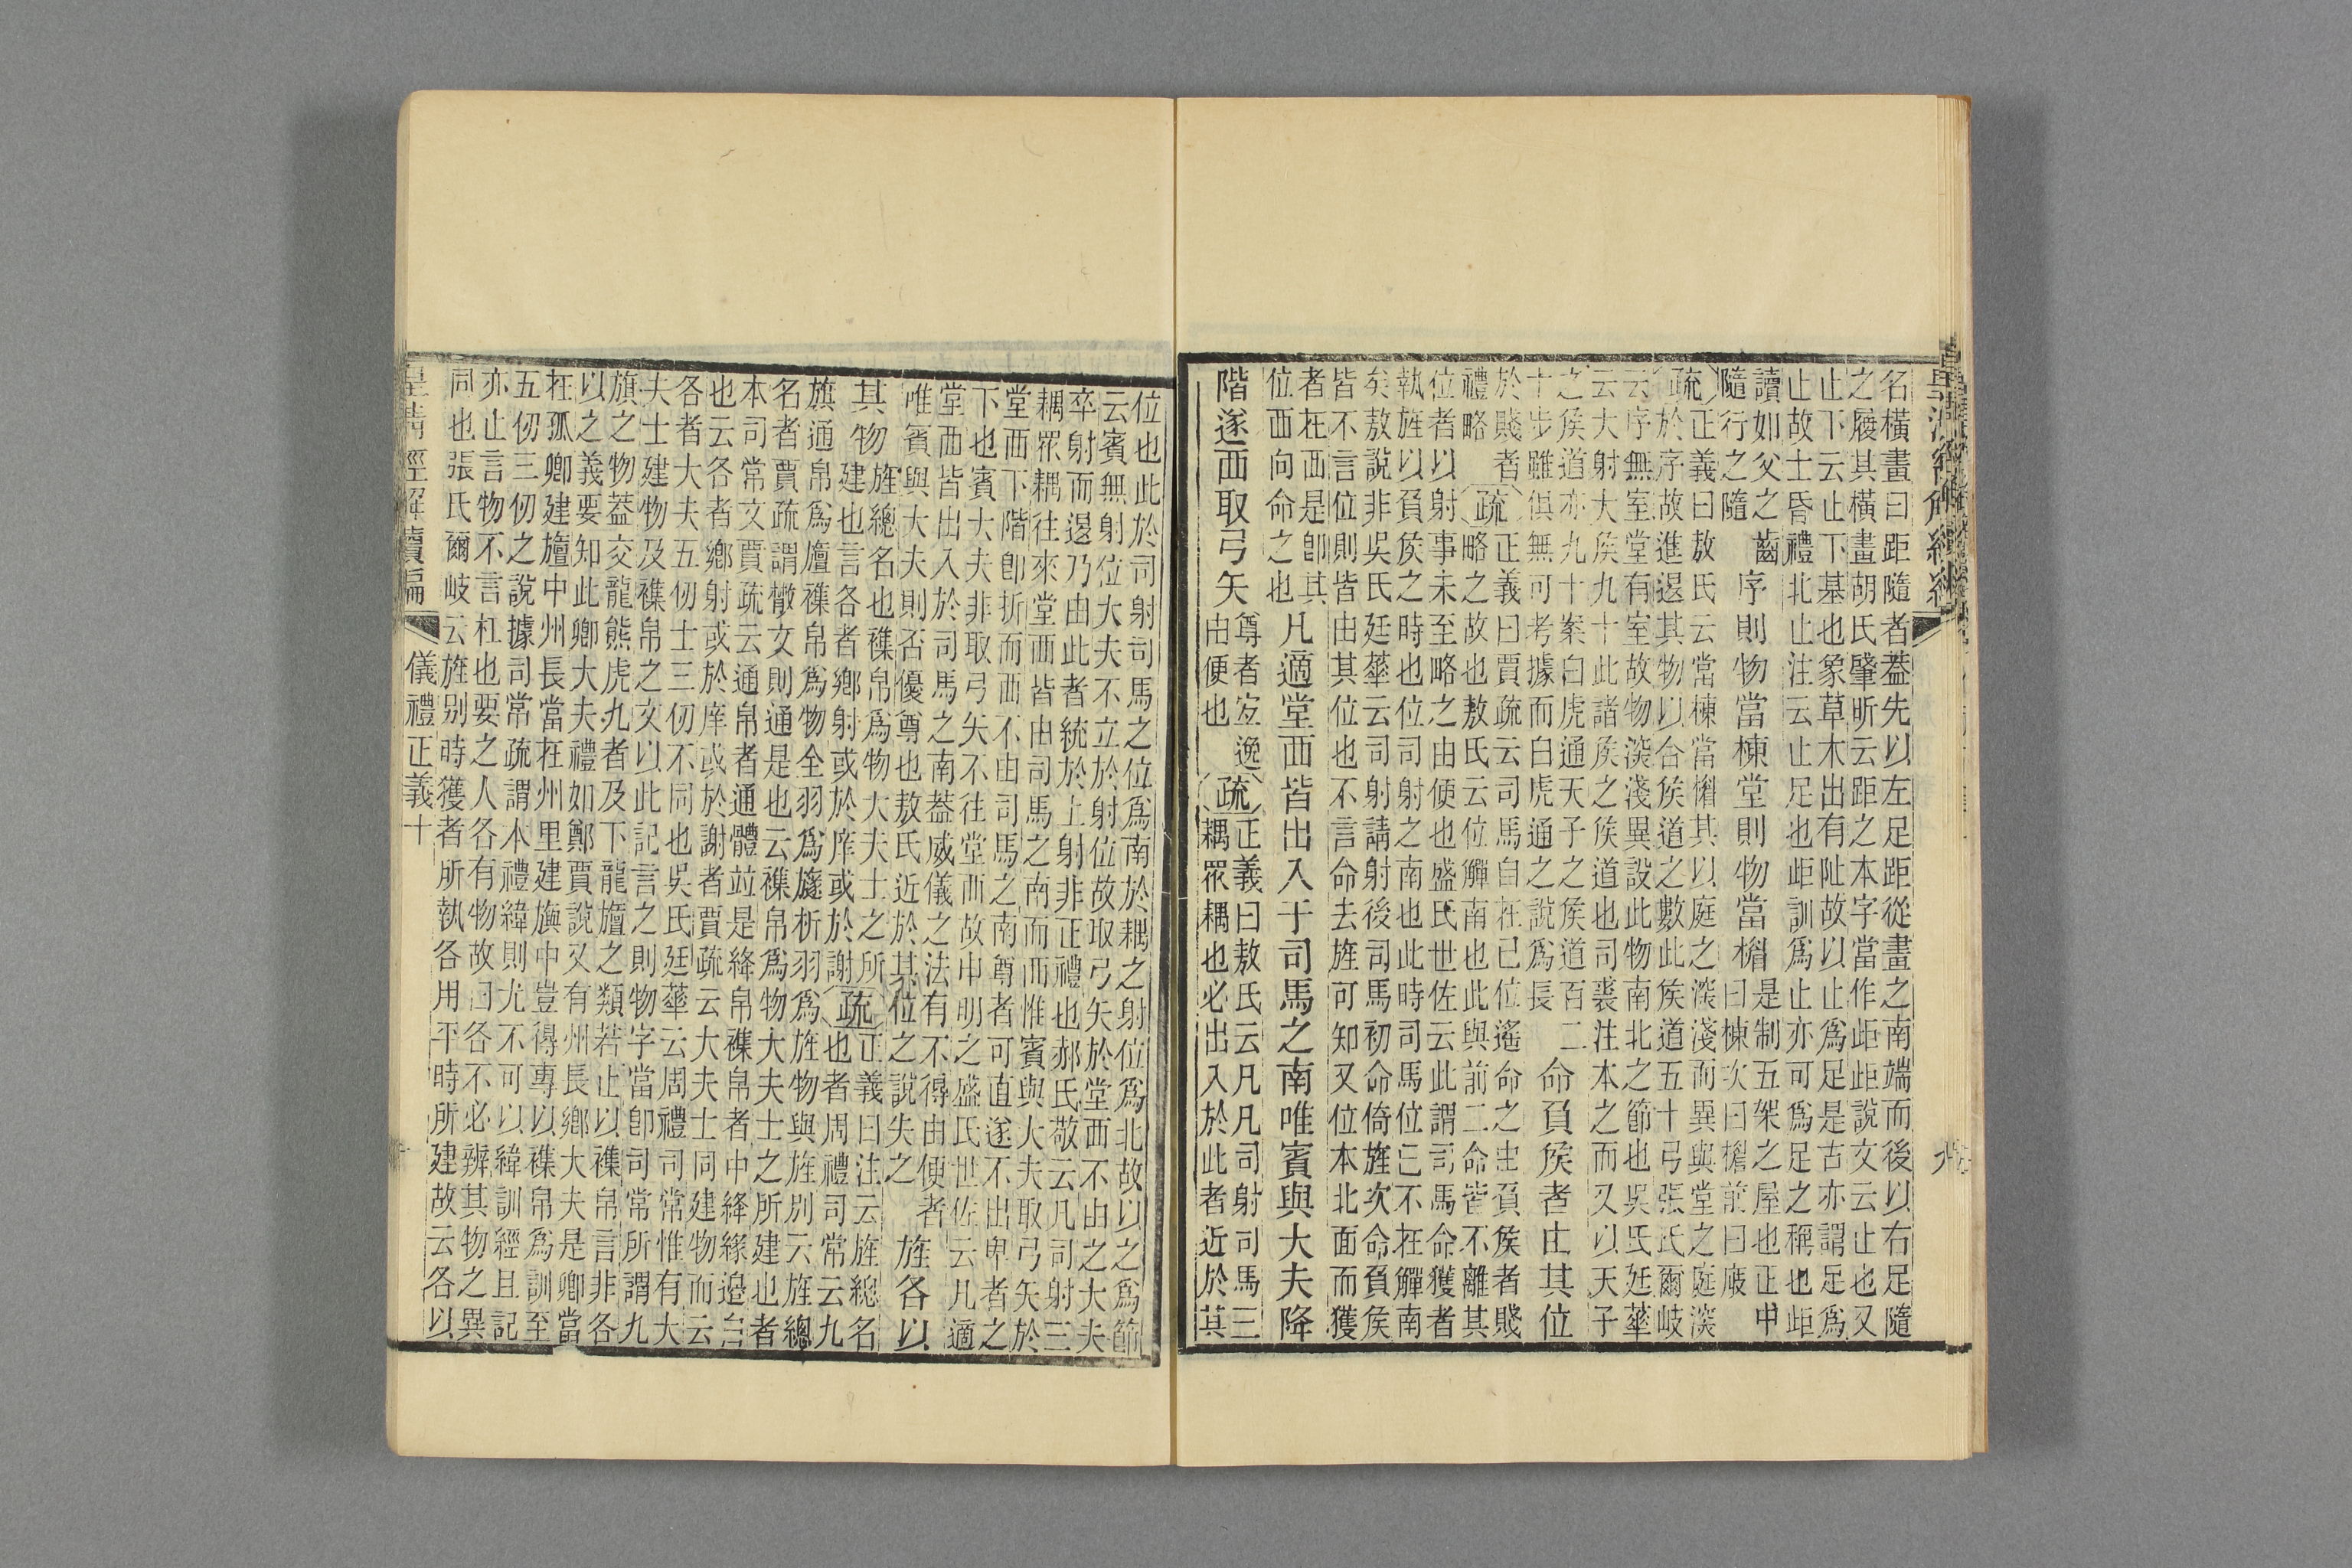 名橫畫曰距隨者葢先以左足距從畫之南端而後以右足隨
之履其橫畫胡氏肇昕云距之本字當作歫歫說文云止也又
止下云止下基也象草木出有阯故以止爲足是古亦謂足爲
止故士昏禮北止注云止足也歫訓爲止亦可爲足之稱也歫
讀如父之齒
隨行之隨
序則物當棟堂則物當楣
是制五架之屋也正中
曰棟次曰楣前曰庪
疏正義曰敖氏云當棟當楣其以庭之淺深而異與堂之庭深
於序故進退其物以合矦道之數此矦道五十弓張氏爾岐
云序無室堂有室故物深淺異設此物南北之節也吳氏廷華
云大射大矦九十此諸矦之矦道也司裘注本之而又以天子
之矦道亦九十案白虎通天子之矦道百二
十步雖俱無可考據而白虎通之說爲長
命負矦者由其位
於賤者
禮略
疏正義曰賈疏云司馬自在已位遙命之由負矦者賤
略之故也敖氏云位觶南也此與前二命皆不離其
位者以射事未至略之由便也盛氏世佐云此謂司馬命獲者
執旌以負矦之時也位司射之南也此時司馬位已不在觶南
矣敖說非吳氏廷華云司射請射後司馬初命倚旌次命負矦
皆不言位則皆由其位也不言命去旌可知又位本北面而獲
者在西是卽其
位西向命之也
凡適堂西皆出入于司馬之南唯賓與大夫降
階遂西取弓矢
尊者宜逸
由便也
疏正義曰敖氏云凡凡司射司馬三
耦眾耦也必出入於此者近於其
位也此於司射司馬之位爲南於耦之射位爲北故以之爲節
云賓無射位大夫不立於射位故取弓矢於堂西不由之大夫
卒射而退乃由此者統於上射非正禮也郝氏敬云凡司射三
耦眾耦往來堂西皆由司馬之南而西惟賓與大夫取弓矢於
堂西下階卽折而西不由司馬之南尊者可直遂不出卑者之
下也賓大夫非取弓矢不往堂西故申明之盛氏世佐云凡適
堂西皆出入於司馬之南葢威儀之法有不得由便者
唯賓與大夫則否優尊也敖氏近於其位之說失之
旌各以
其物
旌總名也襍帛爲物大夫士之所
建也言各者鄉射或於庠或於謝
疏正義曰注云旌總名
也者周禮司常云九
旗通帛爲旜襍帛爲物全羽爲旞析羽爲旌物與旌別云旌總
名者賈疏謂散文則通是也云襍帛爲物大夫士之所建也者
本司常文賈疏云通帛者通體竝是絳帛襍帛者中絳緣邊白
也云各者鄉射或於庠或於謝者賈疏云大夫士同建物而云
各者大夫五仞士三仞不同也吳氏廷華云周禮司常惟有大
夫士建物及襍帛之文以此記言之則物字當卽司常所謂九
旗之物葢交龍熊虎九者及下龍旜之類若止以襍帛言非各
以之義要知此卿大夫禮如鄭賈說又有州長鄉大夫是卿當
在孤卿建旜中州長當在州里建旟中豈得專以襍帛爲訓至
五仞三仞之說據司常疏謂本禮緯則尤不可以緯訓經且記
亦止言物不言杠也要之人各有物故曰各不必辨其物之異
同也張氏爾岐云旌別時獲者所執各用平時所建故云各以
皇清經解續編 儀禮正義十